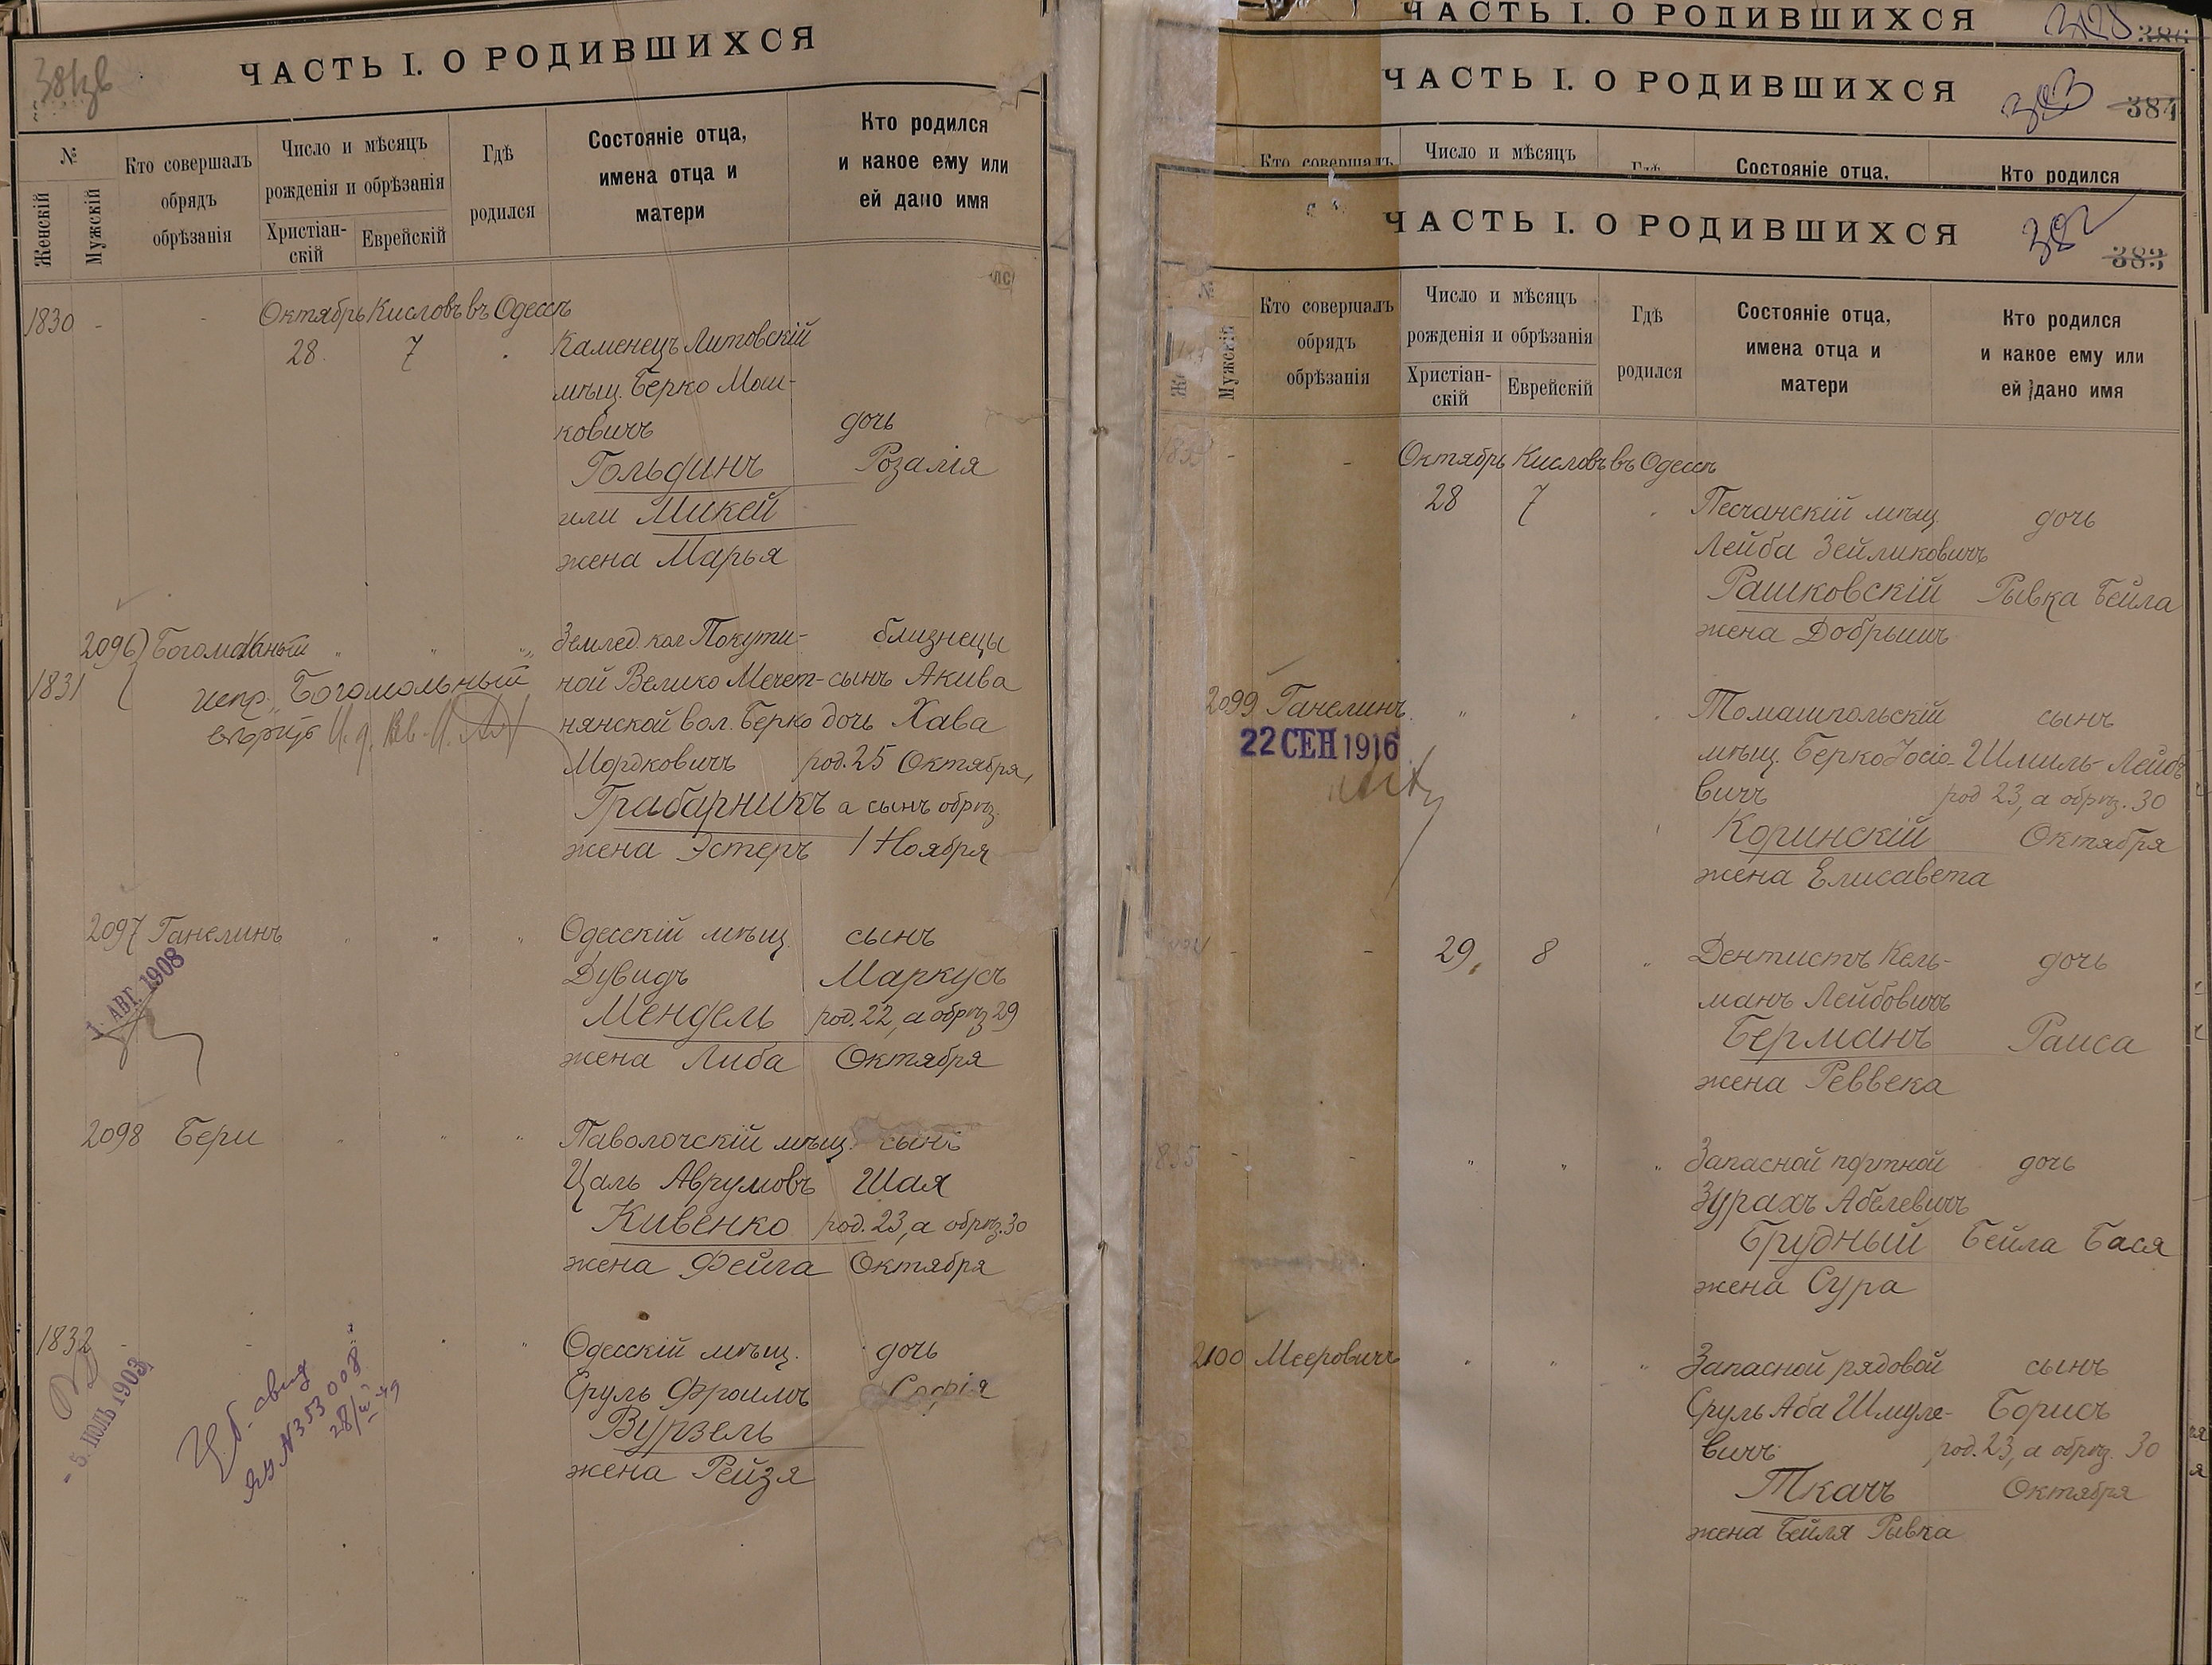 ЧАСТЬ I. О РОДИВШИХСЯ
№
Женскій
Мужскій
Кто совершалъ
обрядъ
обрѣзанія
Число и мѣсяцъ
рожденія и обрѣзанія
Христіан-
скій
Еврейскій
Гдѣ
родился
Состояніе отца,
имена отца и
матери
Кто родился
и какое ему или
ей дано имя
1830 - - Октябрь Кисловъ въ Одессѣ
28. 7 Каменецъ Литовскій
мѣщ. Берко Мош-
ковичъ дочь
Гольдинъ Розалія
или Микей
жена Марья
2096) Богомольный " " " Землед. кол Покути- близнецы
1831 испр. Богомольный ной Велико Мечет- сынъ Акива
вѣрно нянской вол. Берко дочь Хава
Мордковичъ род. 25 Октября,
Грабарникъ а сынъ обрѣз.
жена Эстеръ 1 Ноября
2097 Ганелинъ " " " Одесскій мѣщ. сынъ
1. АВГ. 1908
Дувидъ Маркусъ
Мендель род. 22, а обрѣз 29
жена Либа Октября
2098 Бери " " " Паволочскій мѣщ. сынъ
Цаль Аврумовъ Шая
Кивенко род. 23, а обрѣз. 30
жена Фейга Октября
1832 - Одесскій мѣщ. дочь
Сруль Фроимъ Софія
Вурзель
жена Рейзя
- 5. ІЮЛЬ 1903
ЯЗ N353008
ЧАСТЬ I. О РОДИВШИХСЯ 386
ЧАСТЬ I. О РОДИВШИХСЯ 383 384
Кто совершалъ
Число и мѣсяцъ
Гдѣ
Состояніе отца,
Кто родился
ЧАСТЬ I. О РОДИВШИХСЯ 382 383
№
Мужскій
Кто совершалъ
обрядъ
обрѣзанія
Число и мѣсяцъ
рожденія и обрѣзанія
Христіан-
скій
Еврейскій
Гдѣ
родился
Состояніе отца,
имена отца и
матери
Кто родился
и какое ему или
ей дано имя
- - Октябрь Кисловъ въ Одессѣ
28 7 Песчанскій мѣщ. дочь
Лейба Зейликовичъ
Рашковскій Рывка Бейла
жена Добрышъ
2099 Ганелинъ " " " Томашпольскій сынъ
22 СЕН 1916
мѣщ. Берко Іосіо- Шмиль-Лейбъ
вичъ род 23, а обрѣз. 30
Коринскій Октября
жена Елисавета
- - 29. 8 " Дентистъ Кель- дочь
манъ Лейбовичъ
Берманъ Раиса
жена Реввека
1835 - - " " " Запасной портной дочь
Зурахъ Абелевичъ
Брудный Бейла Бася
жена Сура
2100 Мееровичъ " " " Запасной рядовой сынъ
Сруль Аба Шмуле- Борисъ
вичъ род. 23, а обрѣз. 30
Ткачъ Октября
жена Бейля Рывка